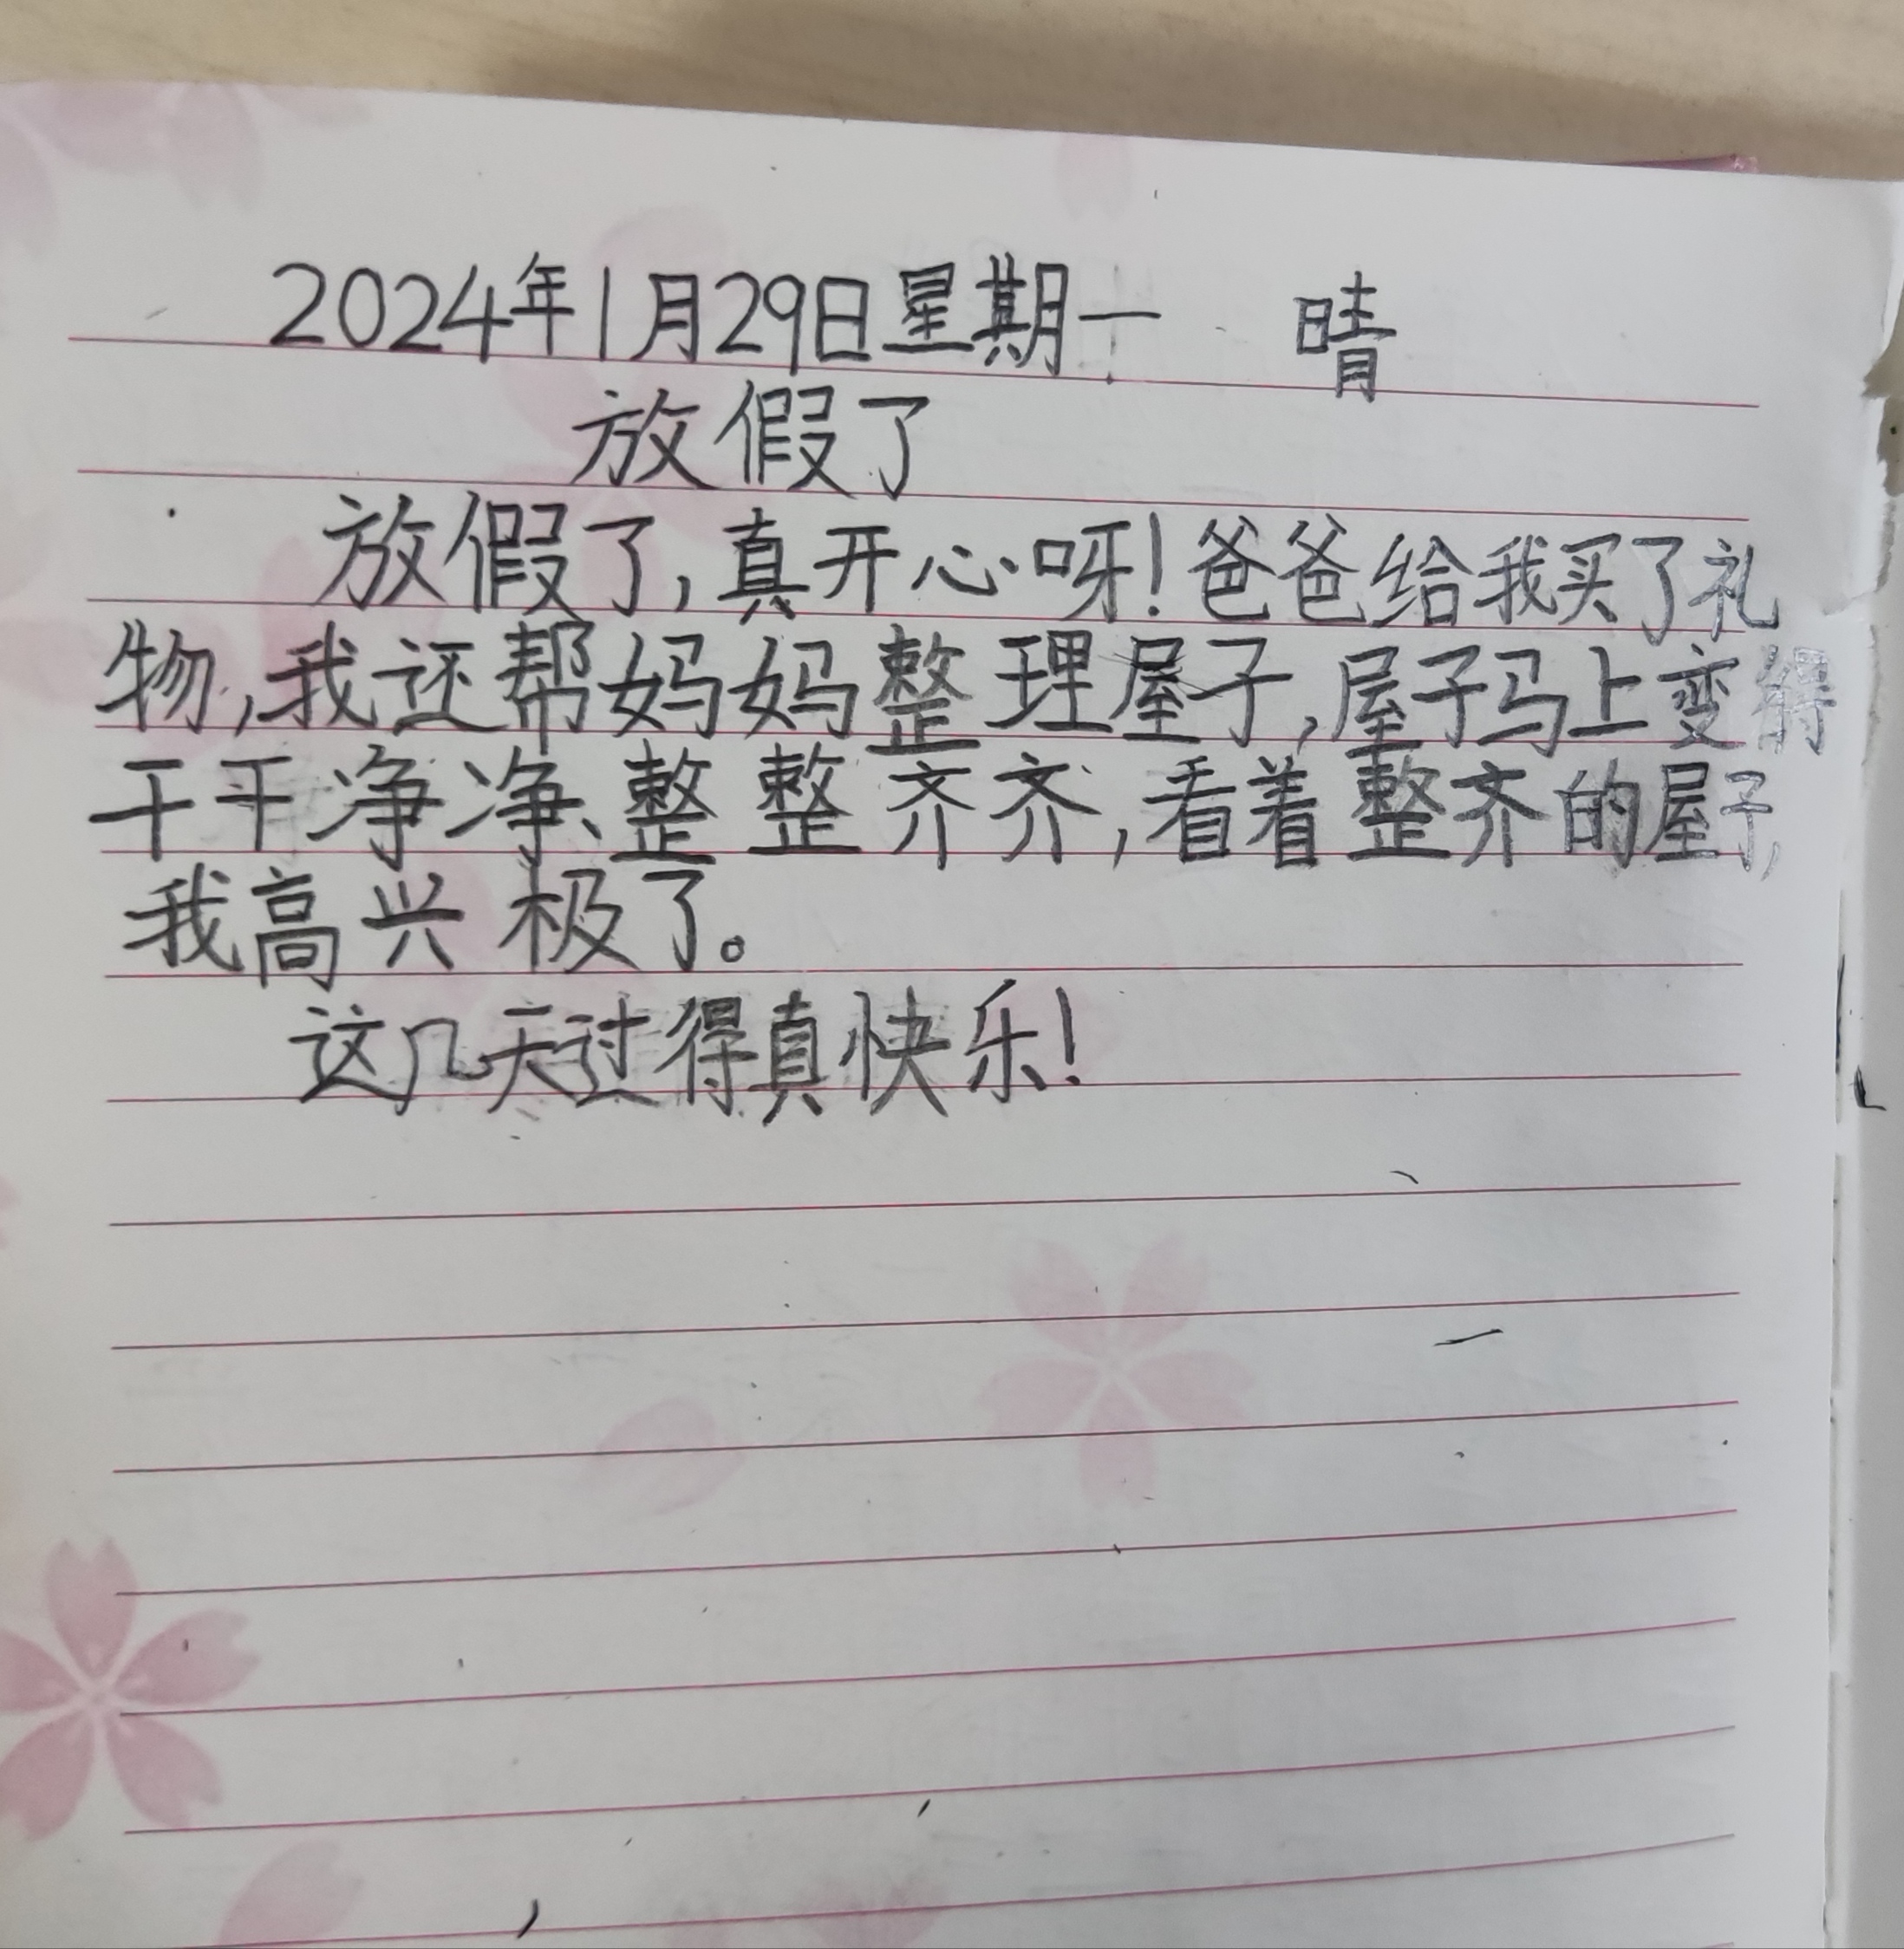 2024年1月29日星期一 晴
放假了
放假了,真开心呀!爸爸给我买了礼
物,我还帮妈妈整理屋子,屋子马上变得
干干净净、整整齐齐,看着整齐的屋子,
我高兴极了。
这几天过得真快乐!